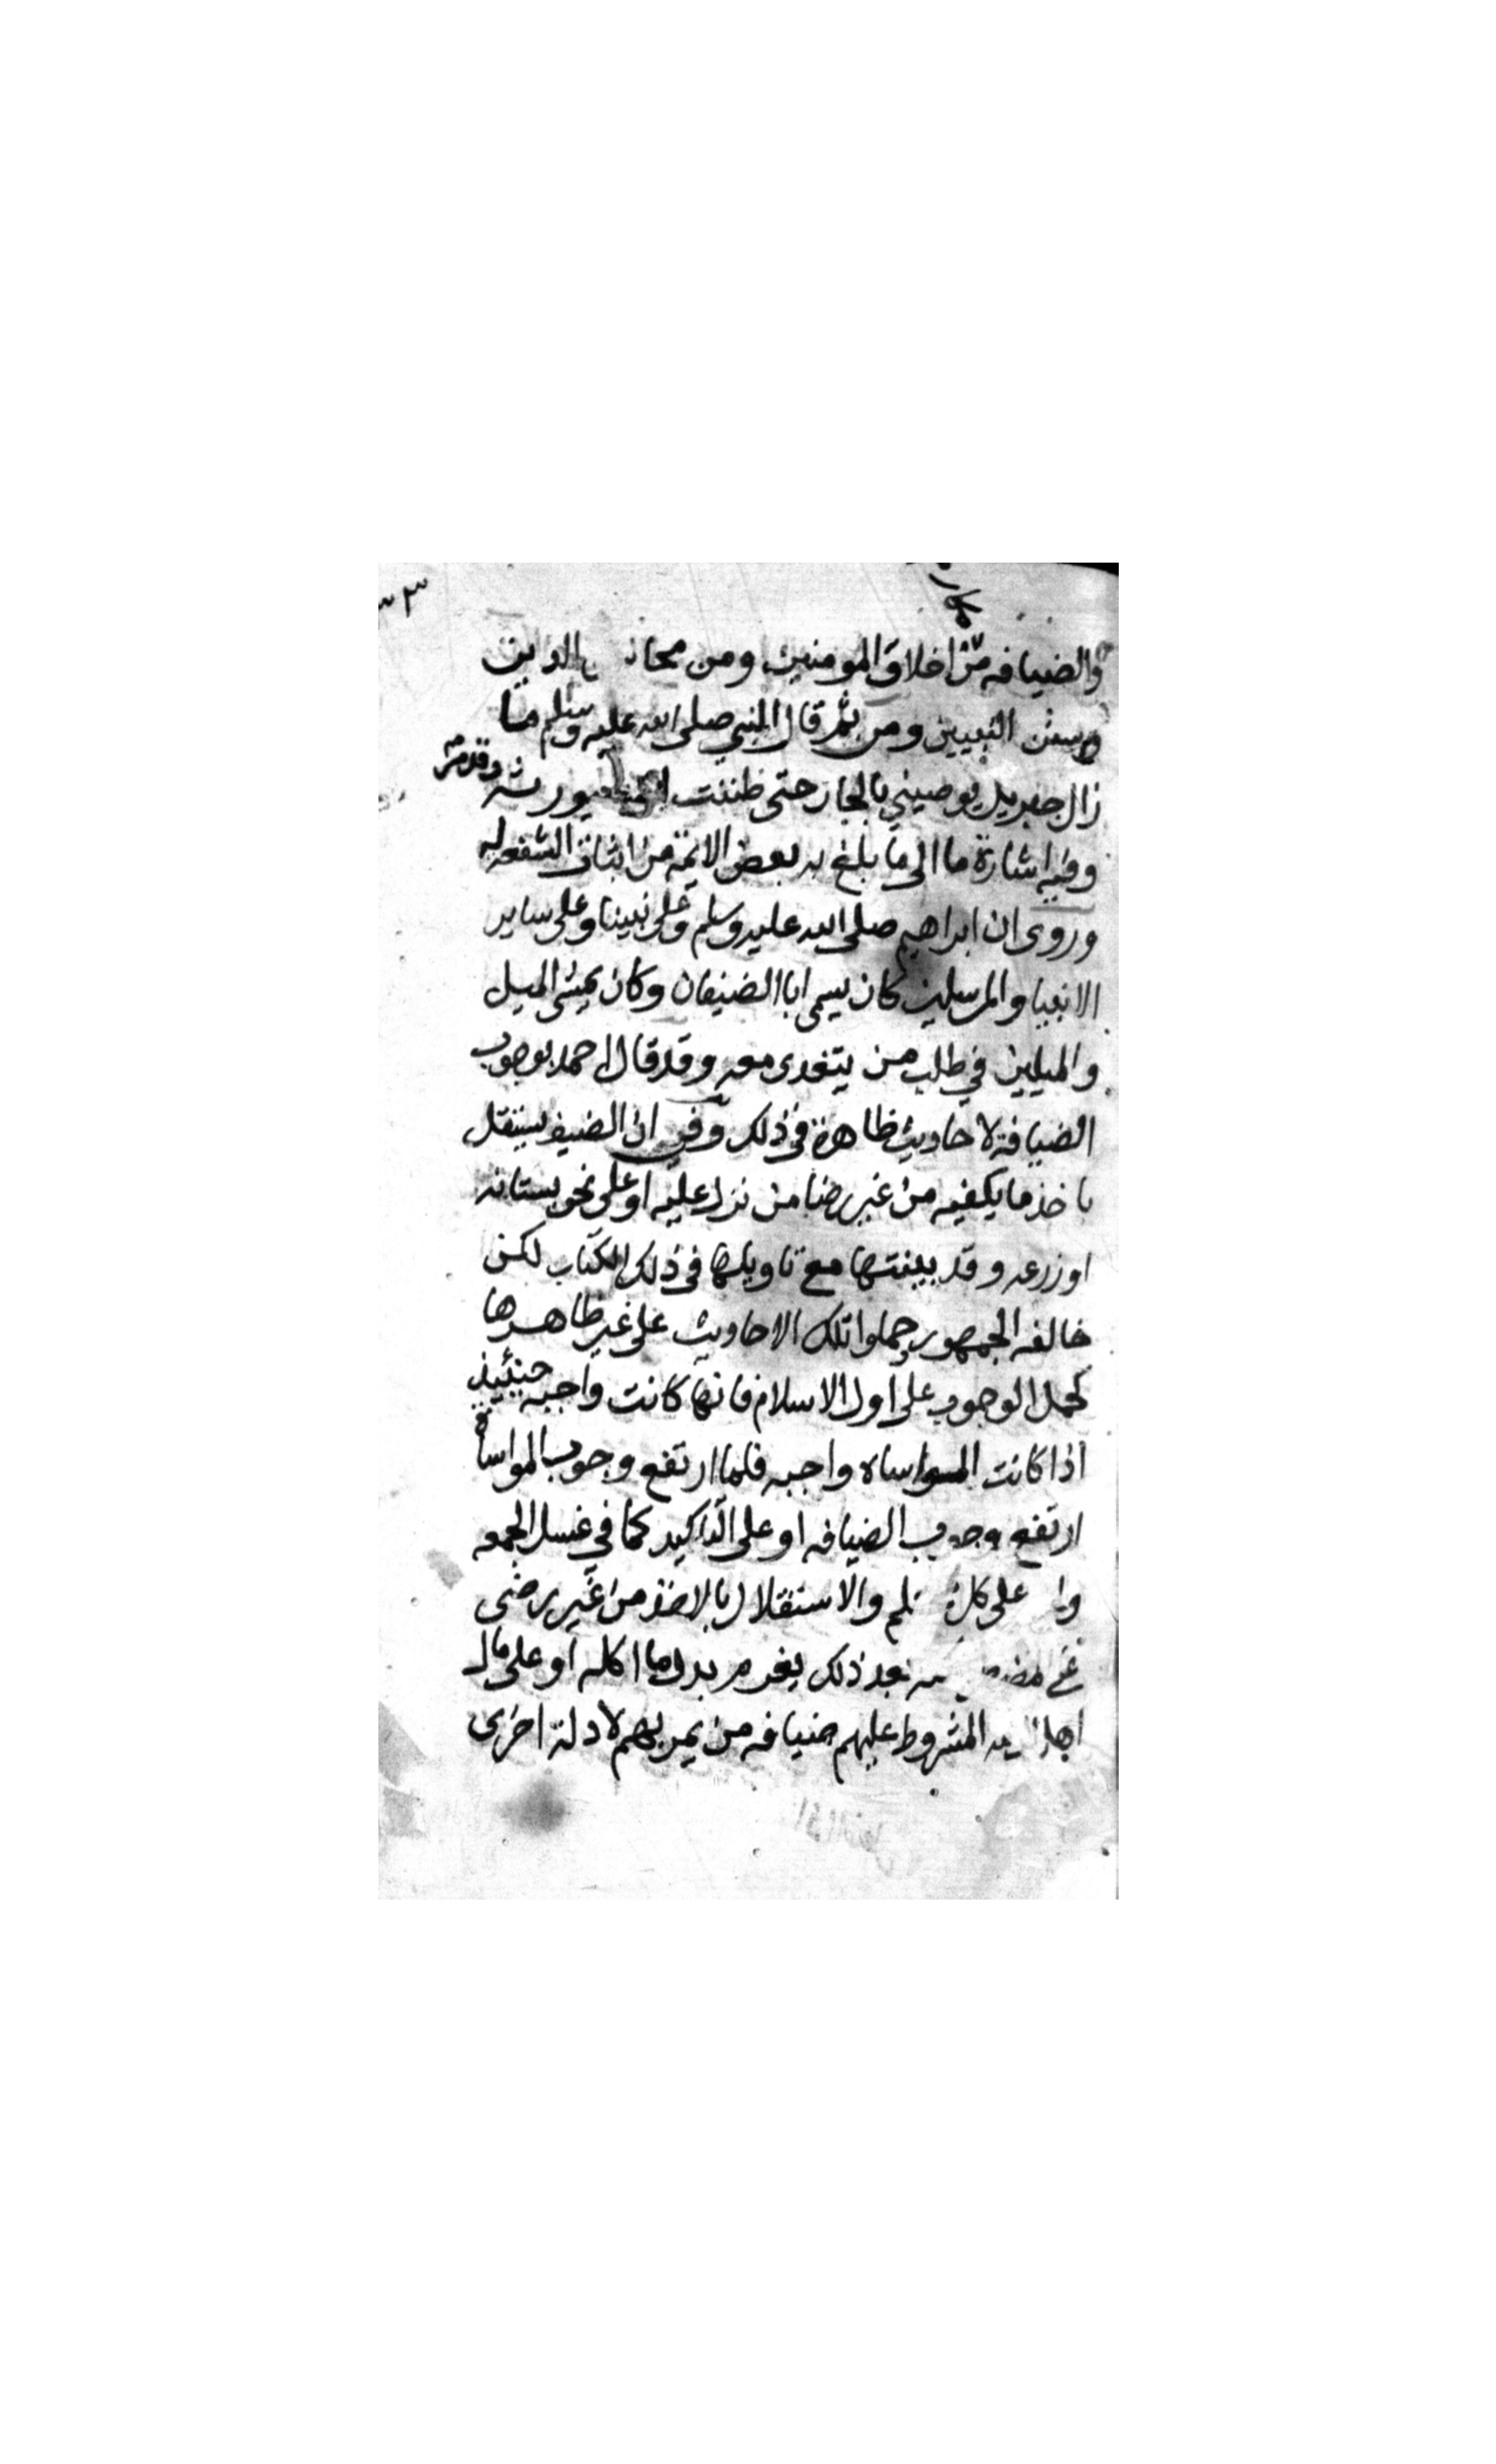 ٣٣
والضيافه من اخلاق المومنين ومن محا الدين
وسنن النبيين ومن ثم قال النبي صلى الله عليه وسلم ما
زال جبريل يوصيني بالجار حتى ظننت انه سيورثه وقد مر
وفيه اشارة ما الى ما بلغ به بعض الائمة من اثبات الشفعه له
وروى ان ابراهيم صلى الله عليه وسلم وعلى نبينا وعلى ساير
الانبيا والمرسلين كان يسمى ابا الضيفان وكان يمشى الميل
والميلين في طلب من يتغدى معه وقد قال احمد بوجوب
الضيافة لاحاديث ظاهرة فى ذلك وفي ان الضيف يستقل
باخذ ما يكفيه من غير رضا من نزل عليه او على نحو بستانه
او زرعه وقد بينتها مع تاويلها فى ذلك الكتاب لكن
خالفه الجمهور وحملوا تلك الاحاديث على غير ظاهرها
كحمل الوجوب على اول الاسلام فانها كانت واجبه حينئيذ
اذا كانت المواساه واجبه فلما ارتفع وجوب المواساة
ارتفع وجوب الضيافه او على التاكيد كما في غسل الجمعه
على كل والاستقلال بالاخذ من غير رضى
بعد ذلك يغرم بدل ما اكله او على مال
اهل المشروط عليهم ضيافه من يمر بهم لادلة اخرى